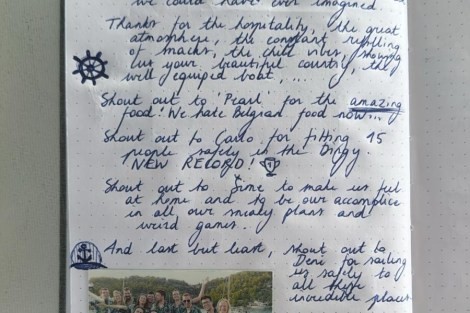 we could have ever imagined
Thanks for the hospitality, the great
atmosphere, the constant refilling
of snacks, the chill vibes, showing
us your beautiful country, the
well equiped boat, ....
Shout out to 'Pearl' for the amazing
food! We hate Belgian food now...
Shout out to Carlo for fitting 15
people safely in the Dingy.
NEW RECORD! 1
Shout out to Sime to make us feel
at home and to be our accomplice
in all our sneaky plans and
weird games.
And last but least, shout out to
Deni for sailing
us safely to
all these
incredible places